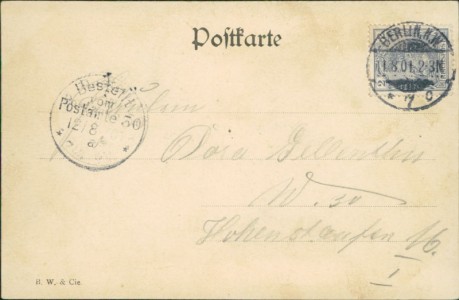 Postkarte
BERLIN, N.W.
11.8.01.2-3N.
* 7 c
Bestellt
vom
Postamte 30
12/8
Dora
W. 30
Hohenstaufen 16
I
B. W. & Cie.